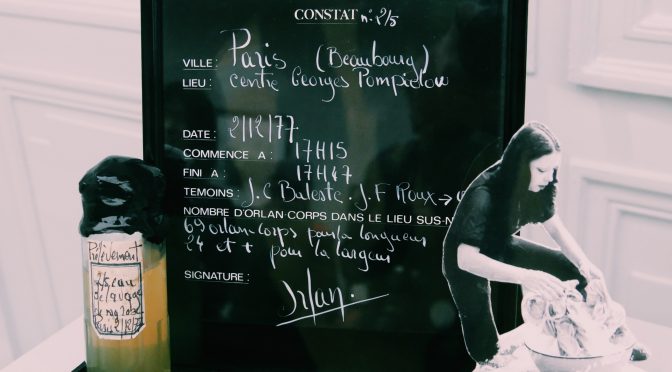 CONSTAT n° 2/5
VILLE : Paris (Beaubourg)
LIEU : Centre Georges Pompidou
DATE : 2/12/77
COMMENCE A : 17H15
FINI A : 17H47
TEMOINS : J.C Baleste . J.F Roux →
NOMBRE D'ORLAN-CORPS DANS LE LIEU SUS-N
69 orlan-corps pour la longueur
24 et + pour la largeur
SIGNATURE :
Orlan.
Prélèvement